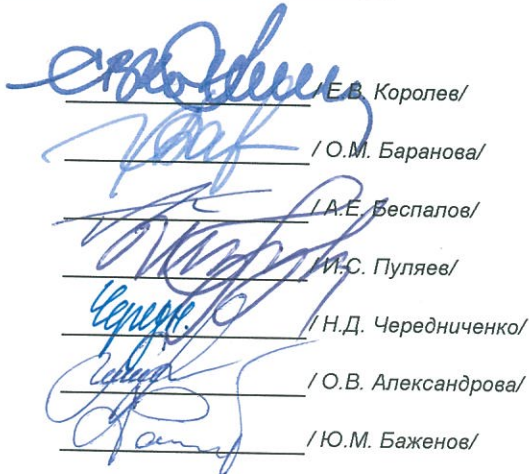 / Е.В. Королев/
/ О.М. Баранова/
/ А.Е. Беспалов/
/ И.С. Пуляев/
Чередн. / Н.Д. Чередниченко/
/ О.В. Александрова/
/ Ю.М. Баженов/